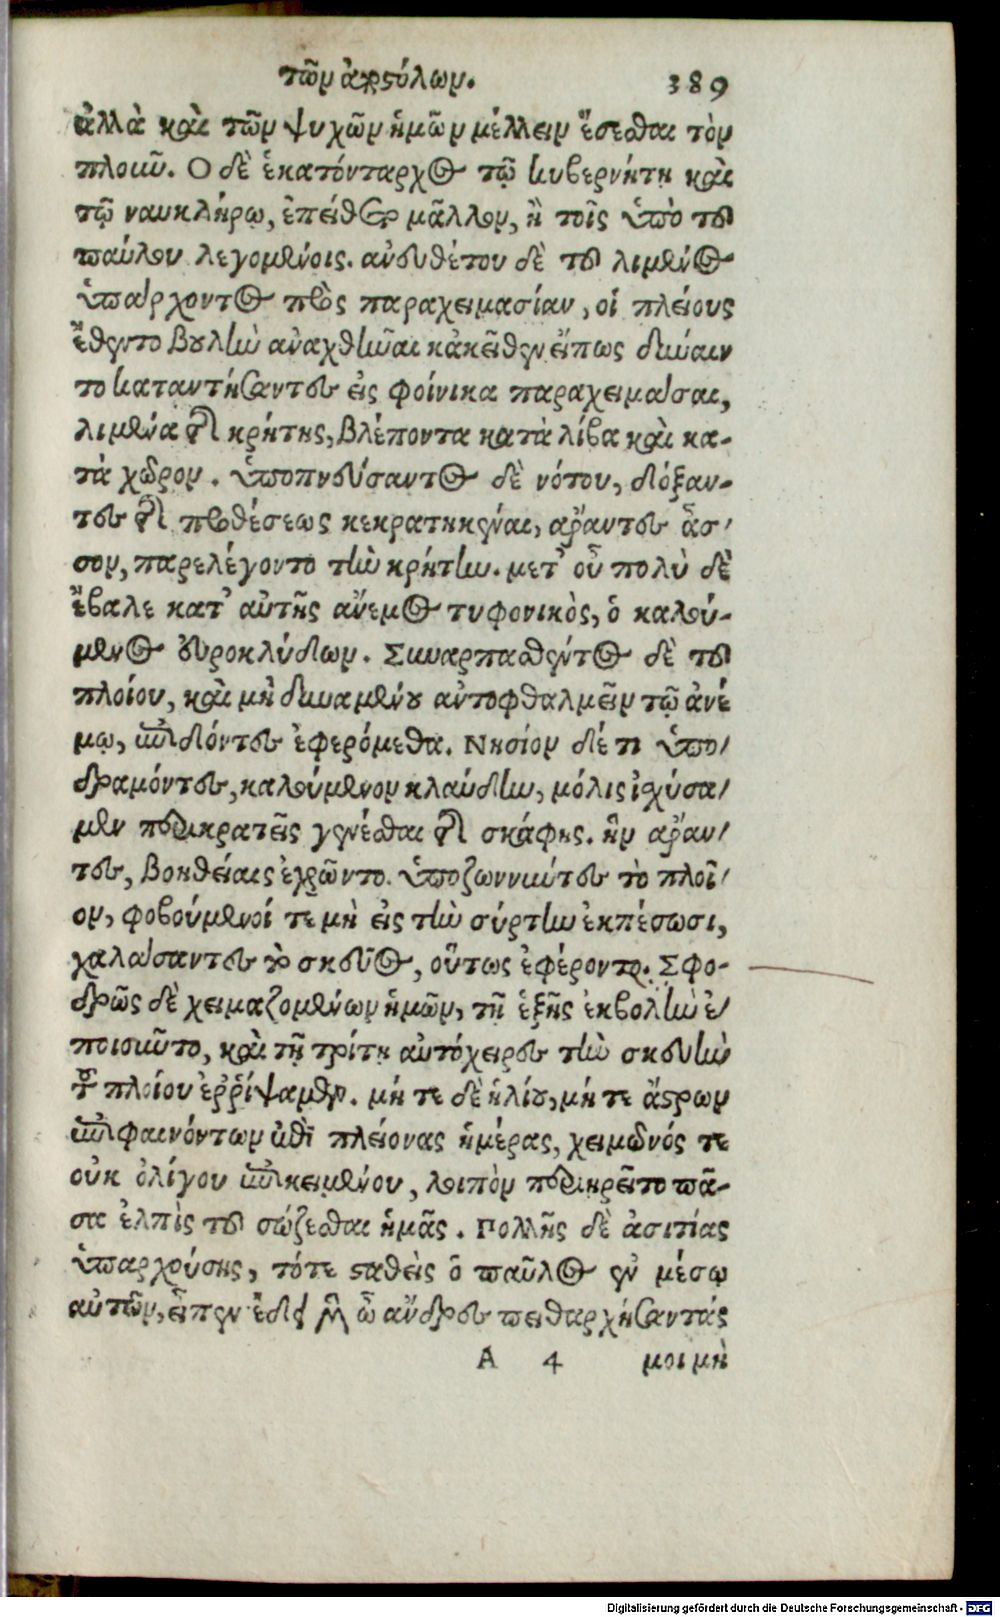 τῶν ἀποστόλων. 389
ἀλλὰ καὶ τῶν ψυχῶν ἡμῶν μέλλειν ἔσεσθαι τὸν
πλοιῦν. Ο δὲ ἑκατόνταρχος τῷ κυβερνήτῃ καὶ
τῷ ναυκλήρῳ, ἐπείθετο μᾶλλον, ἢ τοῖς ὑπὸ τοῦ
παύλου λεγομένοις. ἀνευθέτου δὲ τοῦ λιμένος
ὑπάρχοντος πρὸς παραχειμασίαν, οἱ πλείους
ἔθεντο βουλὴν ἀναχθῆναι κἀκεῖθεν εἴπως δύναιν
το καταντήσαντες εἰς φοίνικα παραχειμάσαι,
λιμένα τῆς κρήτης, βλέποντα κατὰ λίβα καὶ κα-
τὰ χῶρον. ὑποπνεύσαντος δὲ νότου, δόξαν-
τες τῆς προθέσεως κεκρατηκέναι, ἄραντες ἆσ
σον, παρελέγοντο τὴν κρήτην. μετ' οὖ πολὺ δὲ
ἔβαλε κατ' αὐτῆς ἄνεμος τυφονικὸς, ὁ καλού-
μενος εὐροκλύδων. Συναρπασθέντος δὲ τοῦ
πλοίου, καὶ μὴ δυναμένου αὐτοφθαλμεῖν τῷ ἀνέ
μῳ, ἐπιδόντες ἐφερόμεθα. Νησίον δέ τι ὑπο
δραμόντες, καλούμενον κλαύδην, μόλις ἰσχύσα
μεν περικρατεῖς γενέσθαι τῆς σκάφης. ἣν ἄραν
τες, βοηθείαις ἐχρῶντο. ὑποζωννύντες τὸ πλοῖ
ον, φοβούμενοί τε μὴ εἰς τὴν σύρτην ἐκπέσωσι,
χαλάσαντες τὸ σκεῦος, οὕτως ἐφέροντο. Σφο-
δρῶς δὲ χειμαζομένων ἡμῶν, τῇ ἑξῆς ἐκβολὴν ἐ
ποιοῦντο, καὶ τῇ τρίτῃ αὐτόχειρες τὴν σκευὴν
τοῦ πλοίου ἐῤῥίψαμεν. μή τε δὲ ἡλίου, μή τε ἄστρων
ἐπιφαινόντων ἐπὶ πλείονας ἡμέρας, χειμῶνός τε
οὐκ ὀλίγου ἐπικειμένου, λοιπὸν περιῃρεῖτο πᾶ-
σα ἐλπὶς τοῦ σώζεσθαι ἡμᾶς. Πολλῆς δὲ ἀσιτίας
ὑπαρχούσης, τότε σταθεὶς ὁ παῦλος ἐν μέσῳ
αὐτῶν, εἶπεν ἔδει μὲν ὦ ἄνδρες πειθαρχήσαντάς
A 4 μοι μὴ
Digitalisierung gefördert durch die Deutsche Forschungsgemeinschaft - DFG